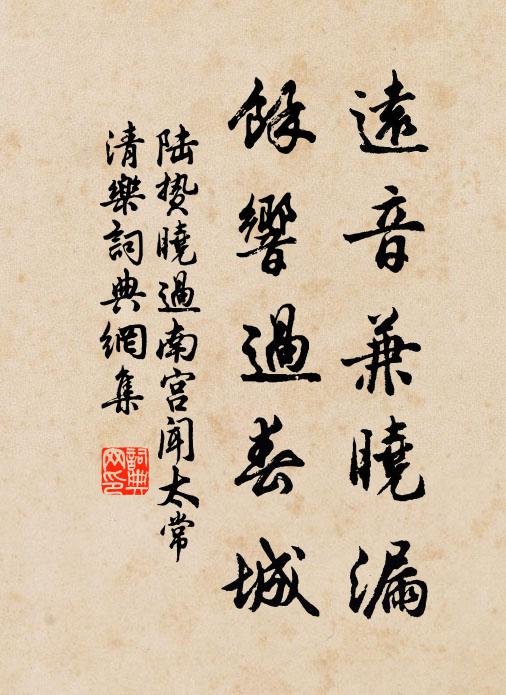 遠音兼曉漏
餘響過春城
陸贄曉過南宮聞太常
清樂詞典網集
詞典
网印